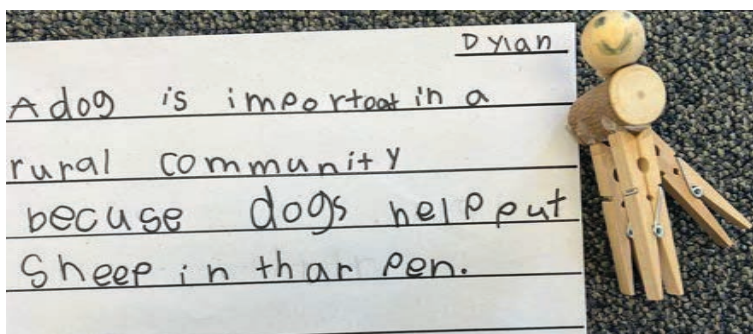 Dylan
A dog is importoat in a
rural community
becuse dogs help put
Sheep in thar pen.